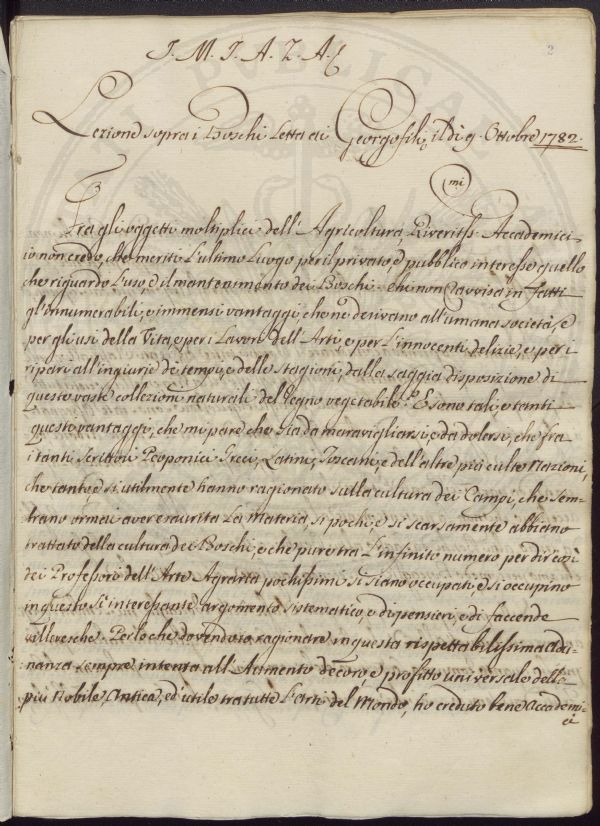 2
J. M. J. A. Z. A.
Lezione sopra i Boschi Letta ai Georgofili, il dì 9. Ottobre 1782.
Fra gli oggetti moltiplici dell'Agricoltura, Riveritiss.mi Accademici
io non credo, che meriti l'ultimo Luogo per il privato, e pubblico interesse quello
che riguarda l'uso, e il mantenimento dei Boschi. Chi non ravvisa in fatti
gl'Innumerabili, e immensi vantaggi che ne derivano all'umana società, e
per gli usi della Vita, e per i Lavori dell'Arti, e per l'innocenti delizie, e per i
ripari all'ingiurie de tempi, e delle stagioni, dalla saggia disposizione di
queste vaste collezioni naturali del Regno vegetabile? E sono tali, e tanti
questi vantaggi, che mi pare che sia da maravigliarsi, e da dolersi, che fra
i tanti Scrittori Geoponici Greci, Latini, Toscani, e dell'altre più culte Nazioni,
che tanto, e sì utilmente hanno ragionato sulla cultura dei Campi, che sem-
brano ormai aver esaurita la Materia, sì pochi, e sì scarsamente abbiano
trattato della cultura dei Boschi, e che pure tra l'infinito numero per dir così
dei Professori dell'Arte Agraria pochissimi si siano occupati, e si occupino
in questo sì interessante argomento sistematico, e di pensieri, e di faccende
villeresche. Perloche dovendo io ragionare in questa rispettabilissima adu-
nanza sempre intenta all'Aumento decoro, e profitto universale della
più Nobile, Antica, ed utile tra tutte l'Arti del Mondo, ho creduto bene Accademi-
ci